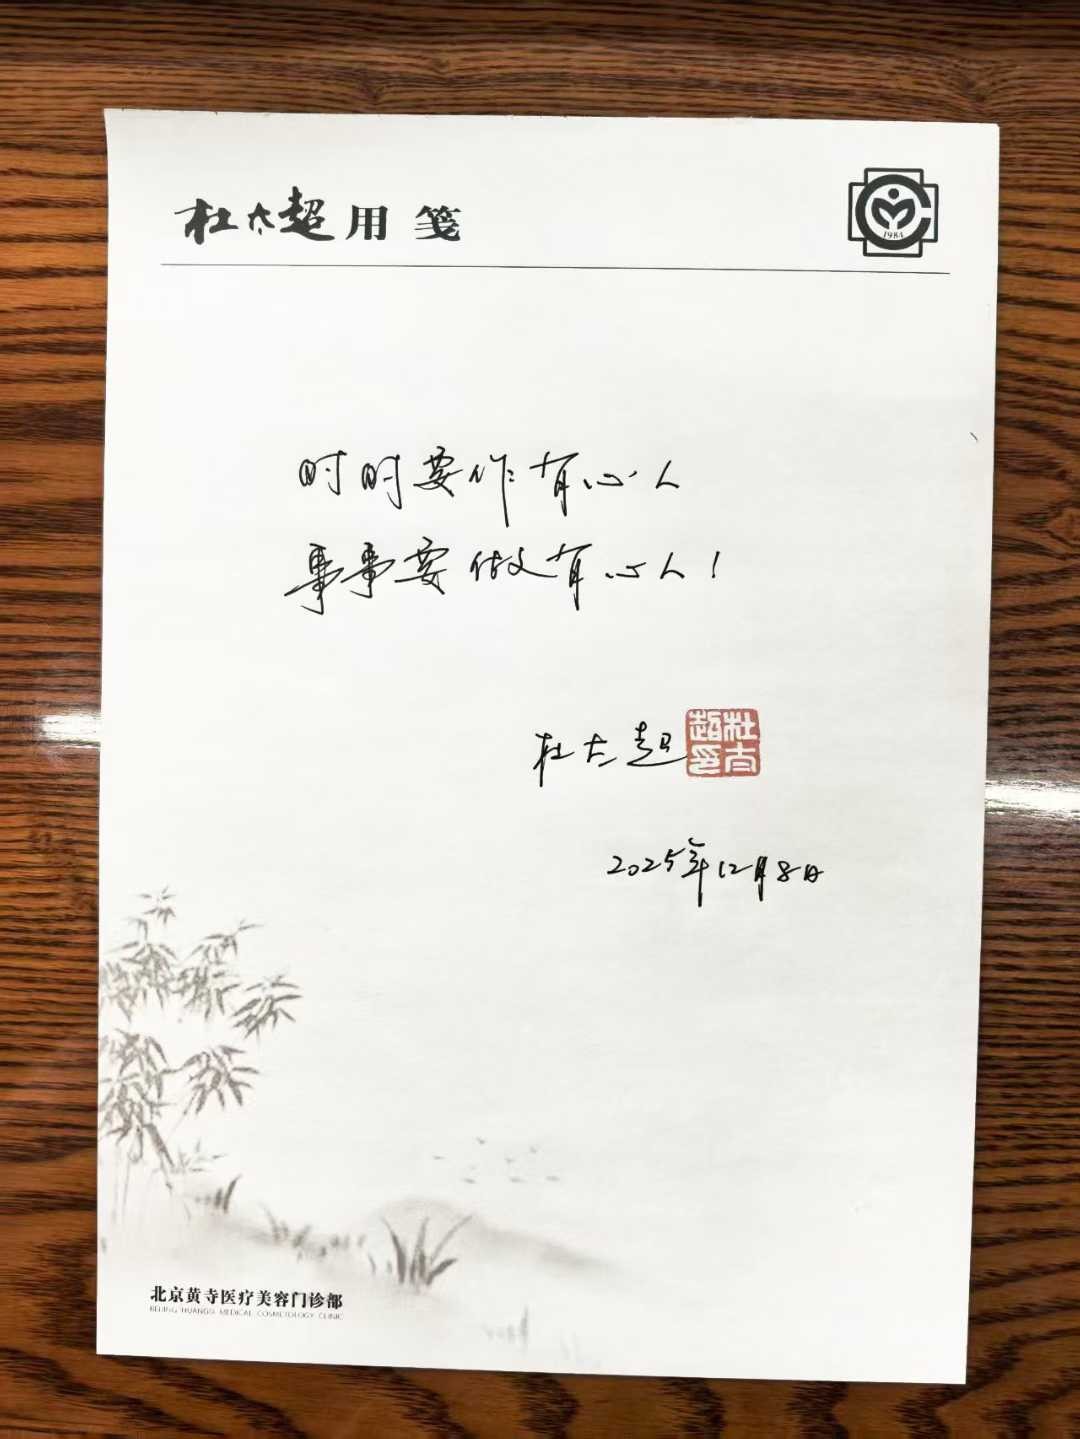 杜太超用笺
1984
时时要作有心人
事事要做有心人！
杜太超
杜太超印
2025年12月8日
北京黄寺医疗美容门诊部
BEIJING HUANGSI MEDICAL COSMETOLOGY CLINIC